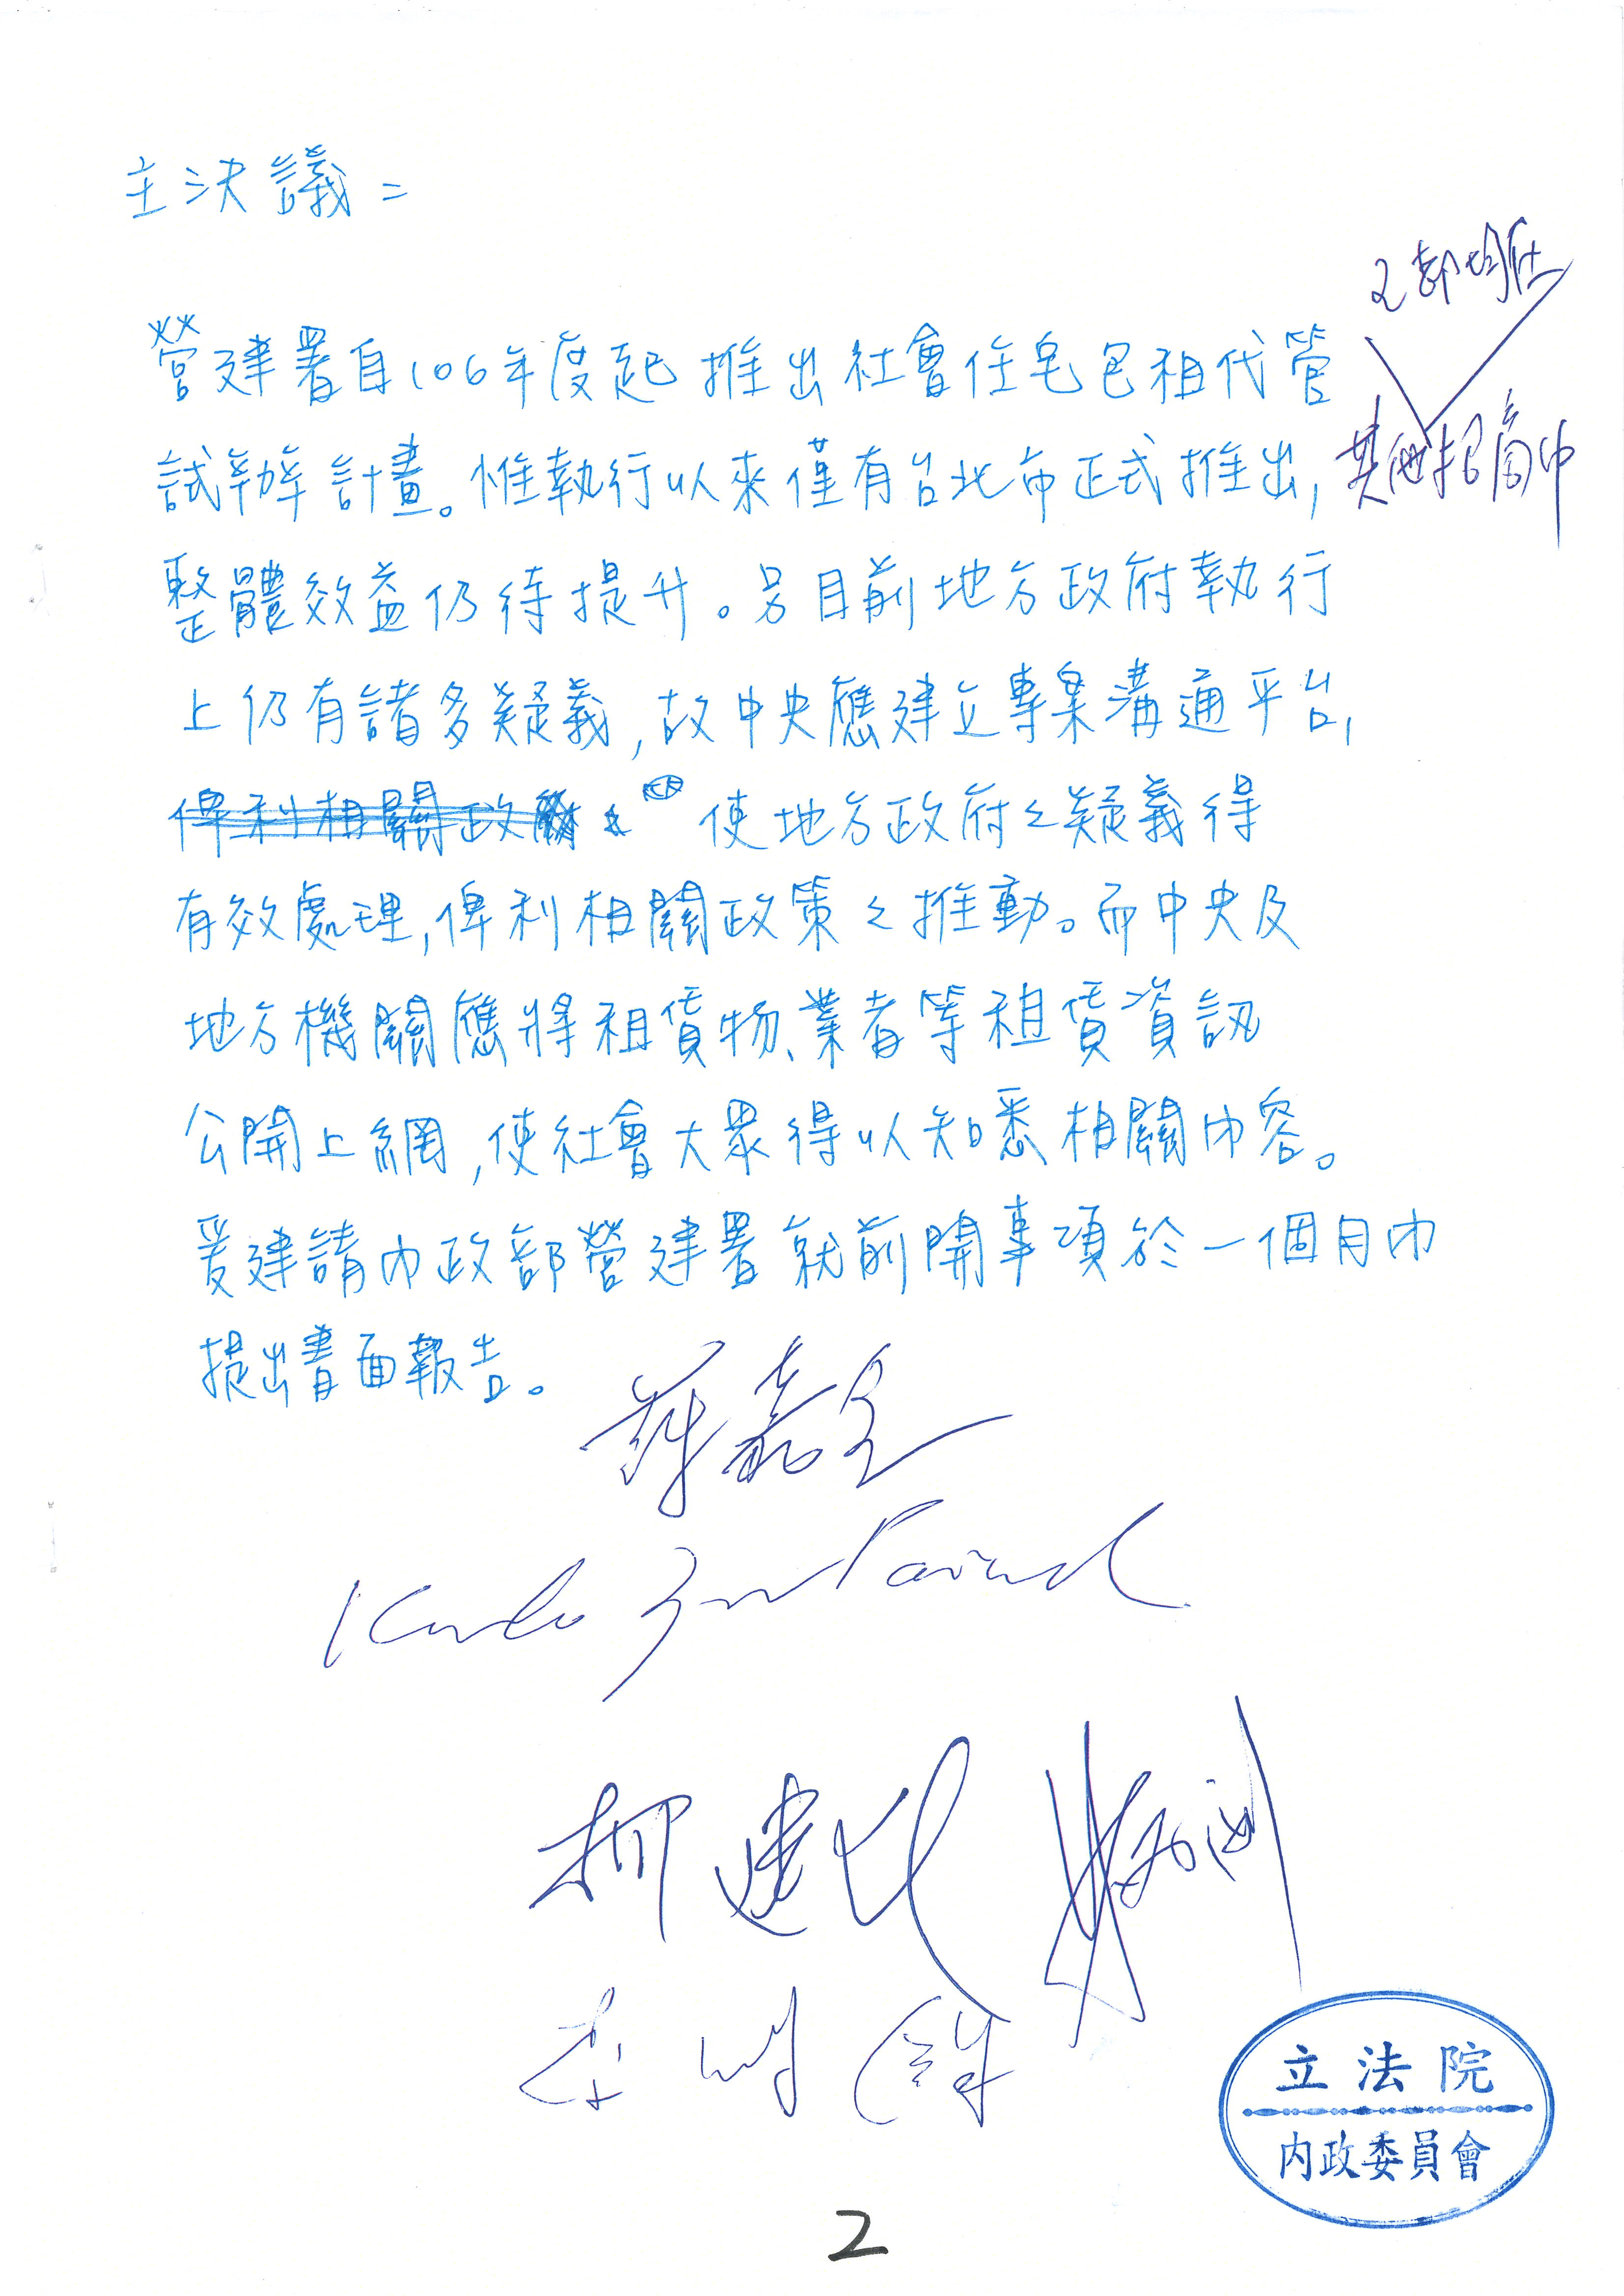 主決議二
營建署自106年度起推出社會住宅包租代管
試辦計畫。惟執行以來僅有台北市正式推出,
其他招商中
整體效益仍待提升。另目前地方政府執行
上仍有諸多疑義,故中央應建立專業溝通平台,
俾利相關政 使地方政府之疑義得
有效處理,俾利相關政策之推動。而中央及
地方機關應將租賃物、業者等租賃資訊
公開上網,使社會大眾得以知悉相關內容。
爰建請內政部營建署就前開事項於一個月內
提出書面報告。
蘇嘉全
Kolas Yotaka
立法院
內政委員會
2